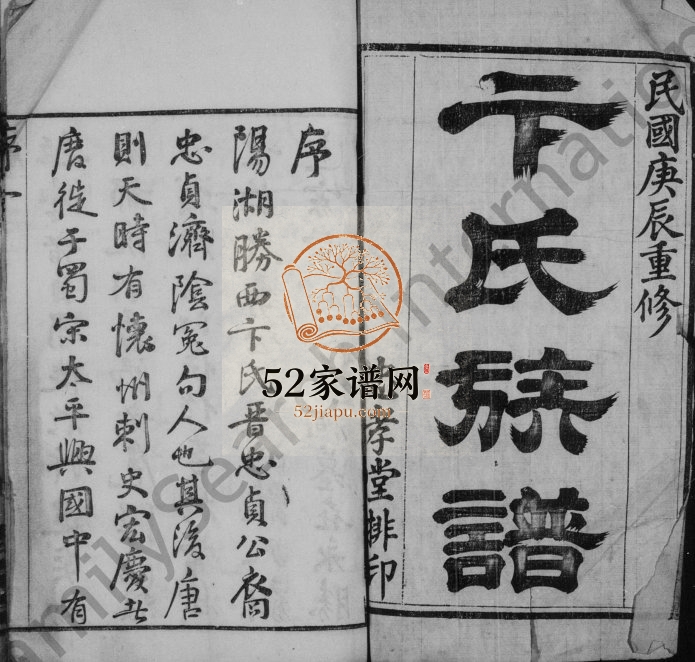 民國庚辰重修
卞氏族譜
孝堂排印
序
陽湖勝西卞氏晉忠貞公裔
忠貞濟陰冤句人也其後唐
則天時有懷州刺史宏慶者
度徙于蜀宗太平興國中有
序一
52家谱网
52jiapu.com
FamilySearch International